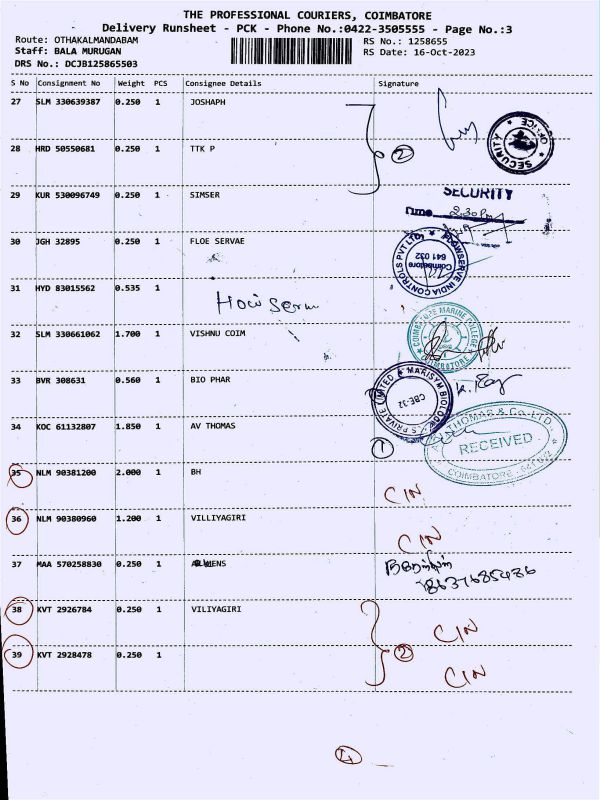 THE PROFESSIONAL COURIERS, COIMBATORE
Delivery Runsheet - PCK - Phone No.:0422-3505555 - Page No.:3
Route: OTHAKALMANDABAM
RS No.: 1258655
Staff: BALA MURUGAN
RS Date: 16-Oct-2023
DRS No.: DCJB125865503
S No Consignment No Weight PCS Consignee Details Signature
27 SLM 330639387 0.250 1 JOSHAPH
SECURITY OFFICE
28 HRD 50550681 0.250 1 TTK P
2
29 KUR 530096749 0.250 1 SIMSER
SECURITY
Time 2.30 Pm
30 JGH 32895 0.250 1 FLOE SERVAE
FLOWSERVE INDIA CONTROLS PVT LTD
Coimbatore
641 032
31 HYD 83015562 0.535 1
32 SLM 330661062 1.700 1 VISHNU COIM
COIMBATORE MARINE COLLEGE
COIMBATORE
33 BVR 308631 0.560 1 BIO PHAR
CBE-32
34 KOC 61132807 1.850 1 AV THOMAS
THOMAS & Co LTD.
RECEIVED
COIMBATORE
1
35 NLM 90381200 2.000 1 BH
CIN
36 NLM 90380960 1.200 1 VILLIYAGIRI
CIN
37 MAA 570258830 0.250 1
8637685436
38 KVT 2926784 0.250 1 VILIYAGIRI
CIN
39 KVT 2928478 0.250 1
2
CIN
4